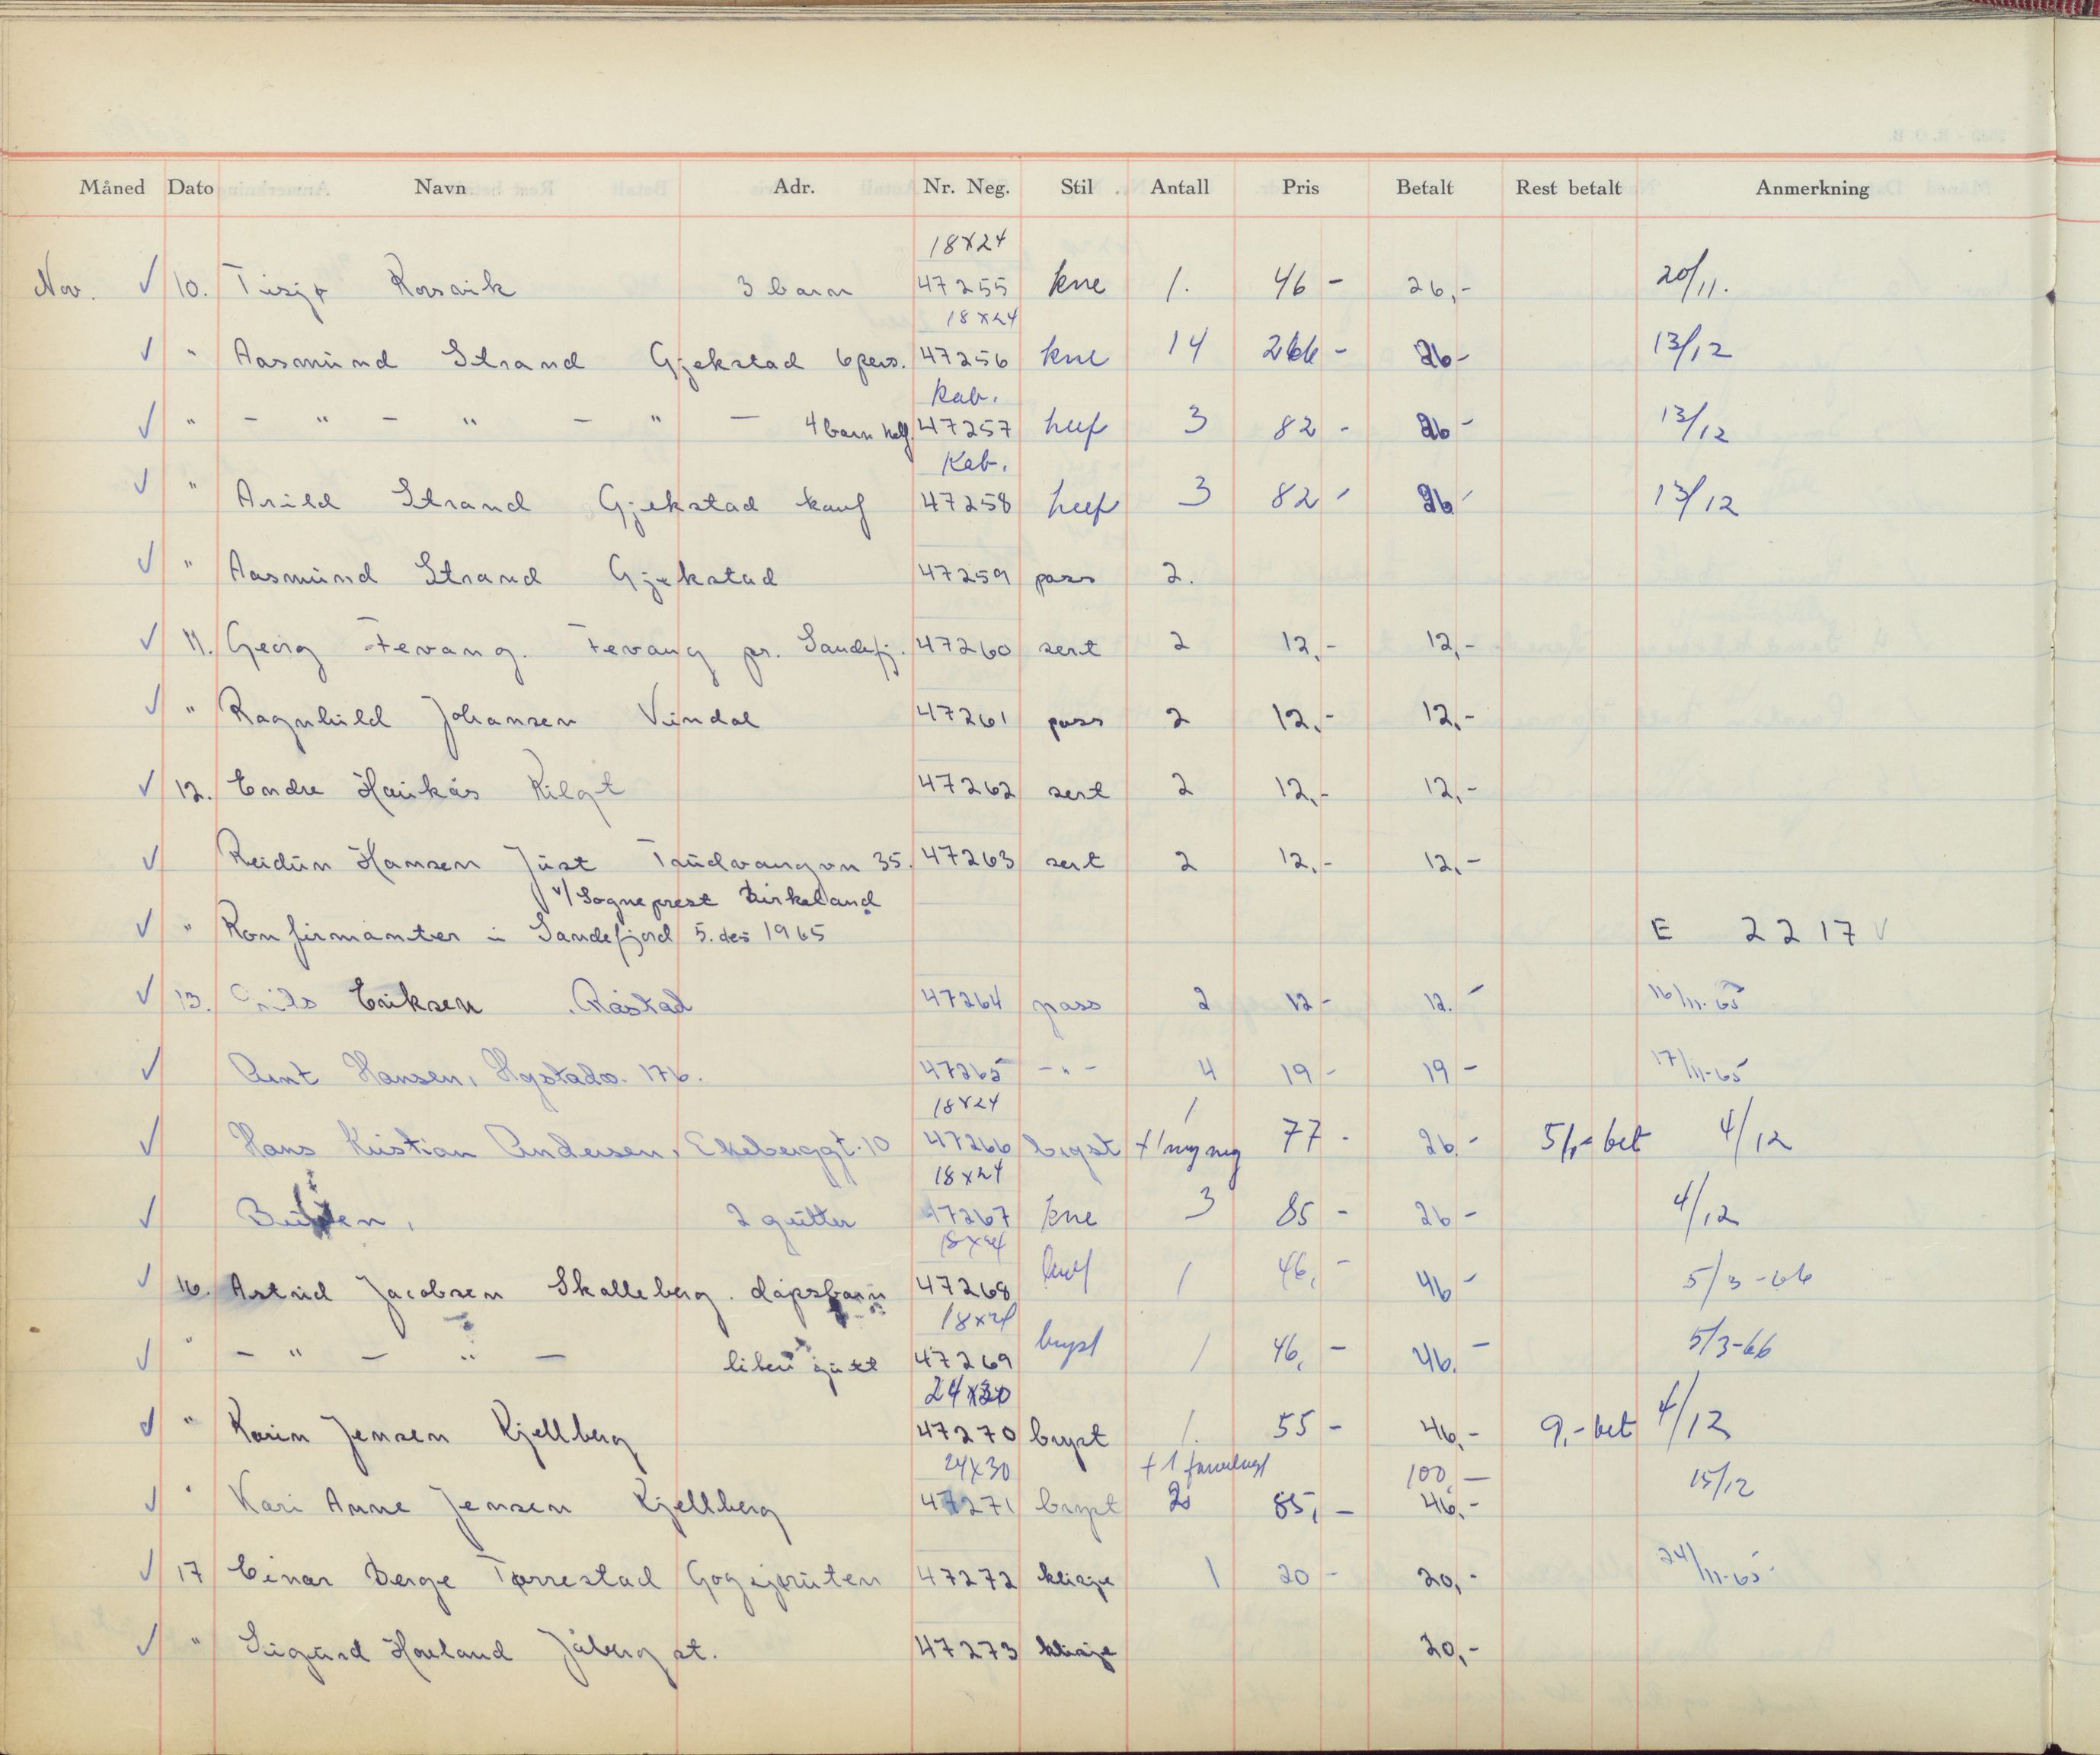 Måned Dato Navn Adr. Nr. Neg. Stil Antall Pris Betalt Rest betalt Anmerkning
18x24
Nov. ✓ 10. Rosvik 3 barn 47255 kne 1. 46 - 26,- 20/11.
18x24
✓ " Aasmund Strand Gjekstad 6 pers. 47256 kne 14 266 - 26- 13/12
Kab.
✓ " - " - " - " - 4 barn 47257 3 82 - 26- 13/12
Kab.
✓ " Arild Strand Gjekstad 47258 3 82 - 26- 13/12
✓ " Aasmund Strand Gjekstad 47259 pass 2.
✓ 11. Georg Fevang. Fevang pr. Sandefj. 47260 sert 2 12,- 12,-
✓ " Ragnhild Johansen Vindal 47261 pass 2 12,- 12,-
✓ 12. Endre Haukås 47262 sert 2 12,- 12,-
✓ Reidun Hansen Just Trudvangvn 35. 47263 sert 2 12,- 12,-
v/ Sogneprest Birkeland
✓ " Konfirmanter i Sandefjord 5. des 1965 E 2217 ✓
✓ 13. Eriksen Råstad 47264 pass 2 12- 12.- 16/11-65
✓ Hansen, 176. 47265 -"- 4 19- 19- 17/11-65
18x24 1
✓ Hans Kristian Andersen, Ekeberggt. 10 47266 bryst + 1 ny neg 77 - 26.- 51,- bet 4/12
18x24
✓ 2 gutter 47267 kne 3 85 - 26 - 4/12
18x24
✓ 16. Astrid Jacobsen Skalleberg. dåpsbarn 47268 1 46,- 46- 5/3-66
18x24
✓ " - " - " - liten gutt 47269 bryst 1 46,- 46.- 5/3-66
24x30
✓ " Karin Jensen Kjellberg 47270 bryst 1. 55 - 46,- 9,- bet 4/12
24x30 + 1 100,-
✓ " Kari Anne Jensen Kjellberg 47271 bryst 2 85,- 46,- 15/12
✓ 17 Einar Berge Tørrestad 47272 klisje 1 20 - 20,- 24/11-65
✓ " Sigurd Hovland Jåberg st. 47273 klisje 20,-